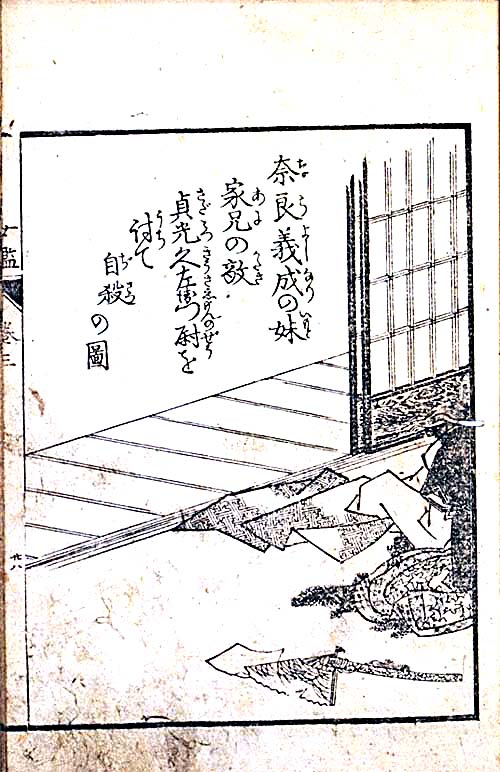 奈良義成の妹
家兄の敵
貞光久左衛門尉を
討て
自殺の圖
女鑑
卷三
廿八